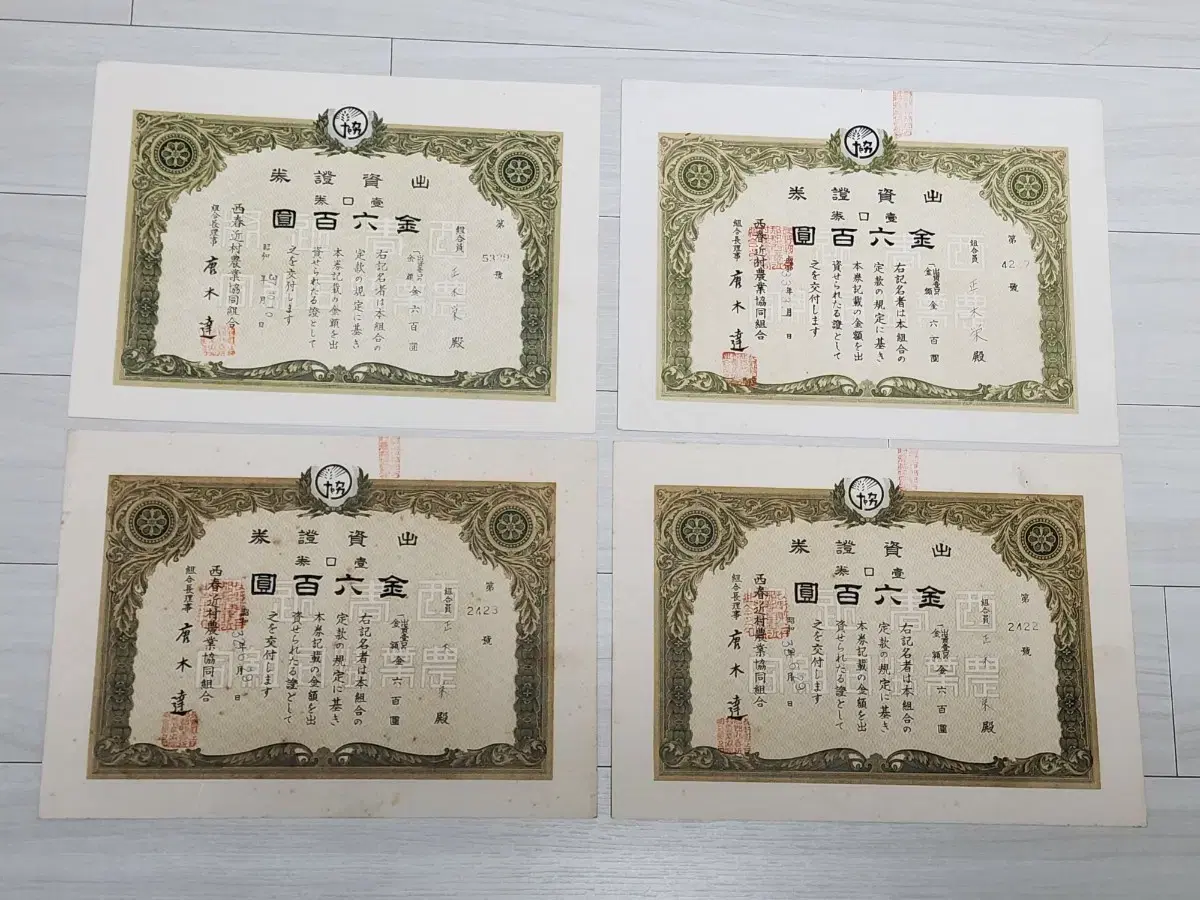 協
出資證券
壹口券
金六百圓
第
號
組合員 正木栄殿
出資壹口金額 金六百圓
右記名者は本組合の
定款の規定に基き
本券記載の金額を出
資せられたる證として
之を交付します
昭和 年 月 日
西春近村農業協同組合
組合長理事 唐木達
協
出資證券
壹口券
金六百圓
第
號
組合員 正木栄殿
出資壹口金額 金六百圓
右記名者は本組合の
定款の規定に基き
本券記載の金額を出
資せられたる證として
之を交付します
年 月 日
西春近村農業協同組合
組合長理事 唐木達
協
出資證券
壹口券
金六百圓
第2423號
組合員 正木 殿
出資壹口金額 金六百圓
右記名者は本組合の
定款の規定に基き
本券記載の金額を出
資せられたる證として
之を交付します
昭和 年 月 日
西春近村農業協同組合
組合長理事 唐木達
協
出資證券
壹口券
金六百圓
第2422號
組合員 正木 殿
出資壹口金額 金六百圓
右記名者は本組合の
定款の規定に基き
本券記載の金額を出
資せられたる證として
之を交付します
昭和 年 月 日
西春近村農業協同組合
組合長理事 唐木達